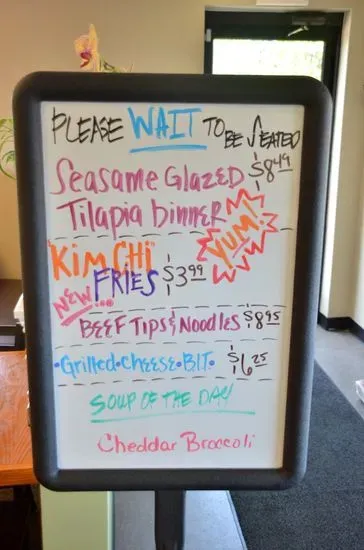 PLEASE WAIT TO BE SEATED
SEASAME GLAZED $8.49
TILAPIA DINNER
YUM!
KIM CHI
FRIES $3.99
NEW...
BEEF TIPS & NOODLES $8.95
•Grilled•Cheese•B.L.T.• $6.25
SOUP OF THE DAY
Cheddar Broccoli